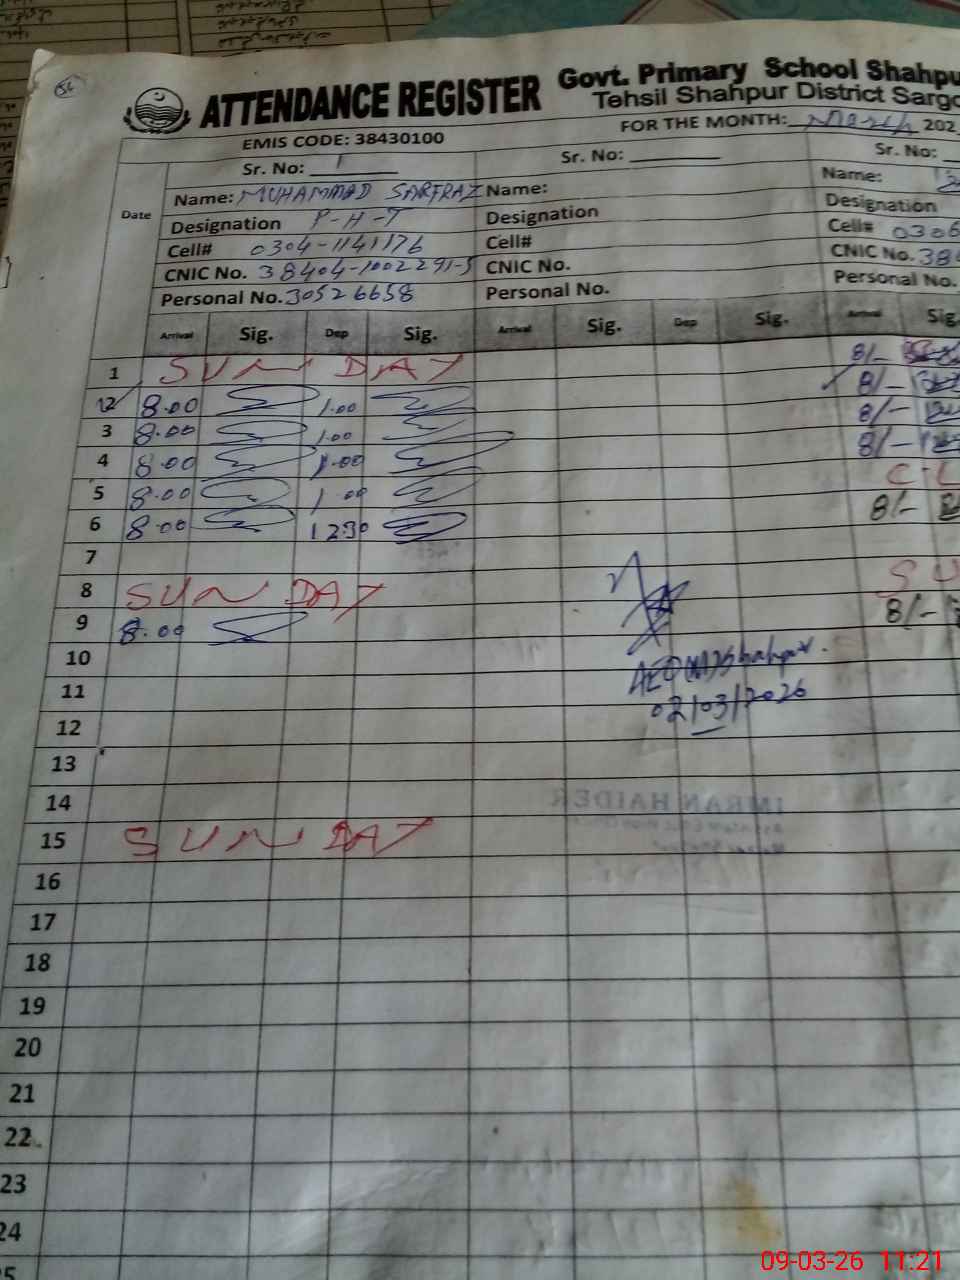 ATTENDANCE REGISTER Govt. Primary School Shahpu
Tehsil Shahpur District Sargo
EMIS CODE: 38430100 FOR THE MONTH: March 202
Date
Sr. No: 1 Sr. No: Sr. No:
Name: MUHAMMAD SARFRAZ Name: Name:
Designation P-H-T Designation Designation
Cell# 0304-1141176 Cell# Cell# 0306
CNIC No. 38404-1002291-5 CNIC No. CNIC No. 384
Personal No. 30526658 Personal No. Personal No.
Arrival Sig. Dep Sig. Arrival Sig. Dep Sig. Arrival Sig.
1 SUNDAY 8/-
2 8.00 1.00 8/-
3 8.00 1.00 8/-
4 8.00 1.00 8/-
5 8.00 1.00 C-L
6 8.00 12.30 8/-
7
8 SUNDAY SU
9 8.00 8/-
10
AEO (M) Shahpur.
11
02/03/2026
12
13
14
IMRAN HAIDER
15 SUNDAY
16
17
18
19
20
21
22
23
24
5
09-03-26 11:21